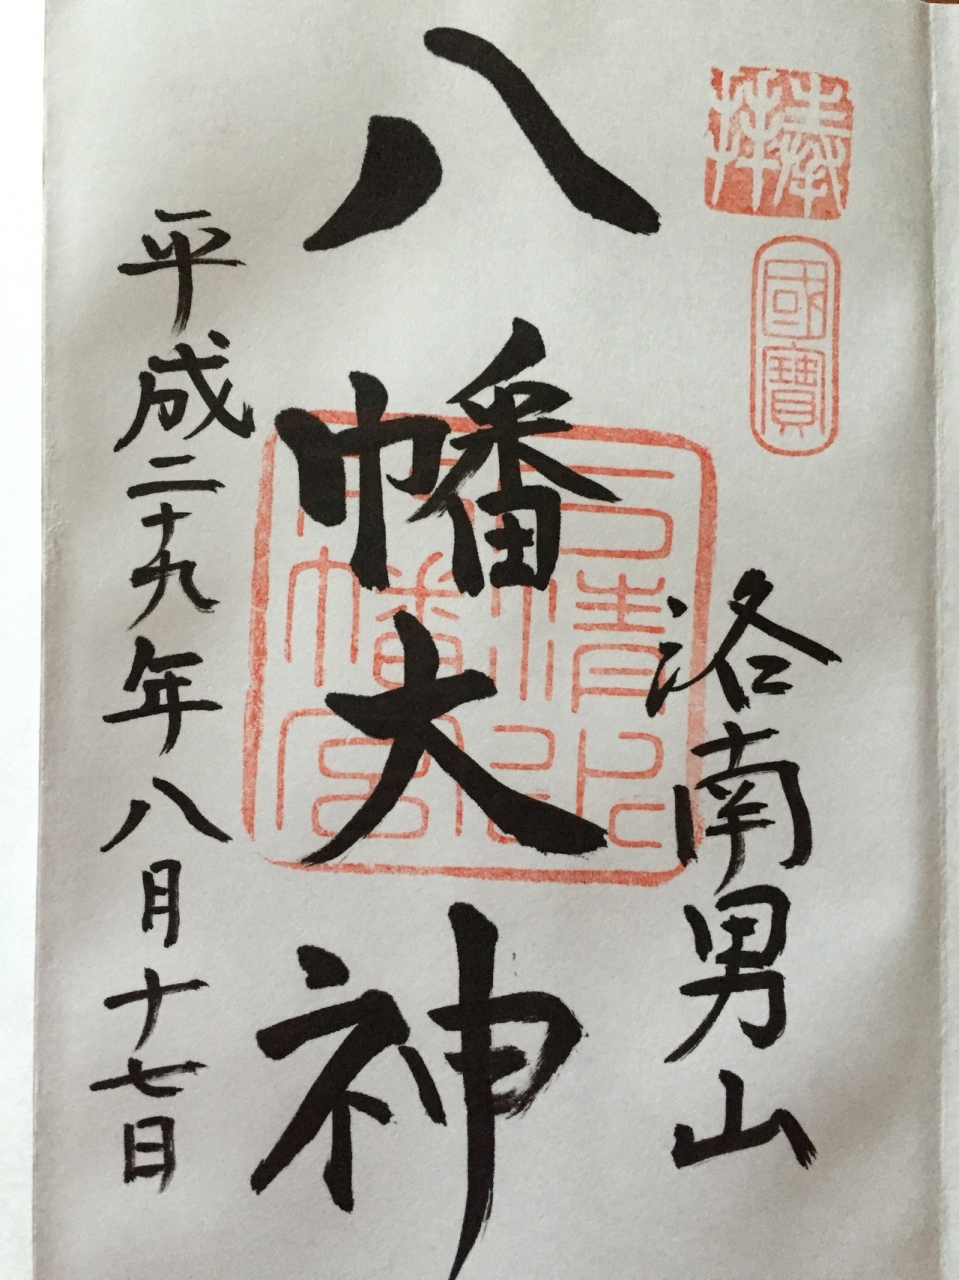 奉拝
國寶
洛南男山
八幡大神
石清水
八幡宮
平成二十九年八月十七日